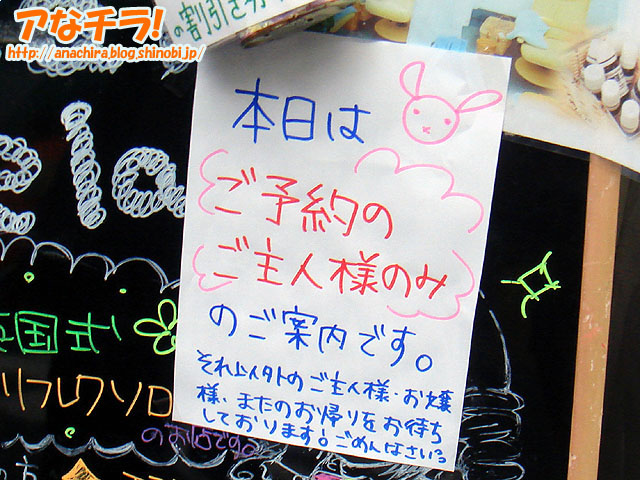 アなチラ!
http://anachira.blog.shinobi.jp/
の割引き
ela
本日は
ご予約の
ご主人様のみ
のご案内です。
それ以外のご主人様・お嬢
様、またのお帰りをお待ち
しております。ごめんなさいっ
英国式
リフレクソロ
のお店です。
の方